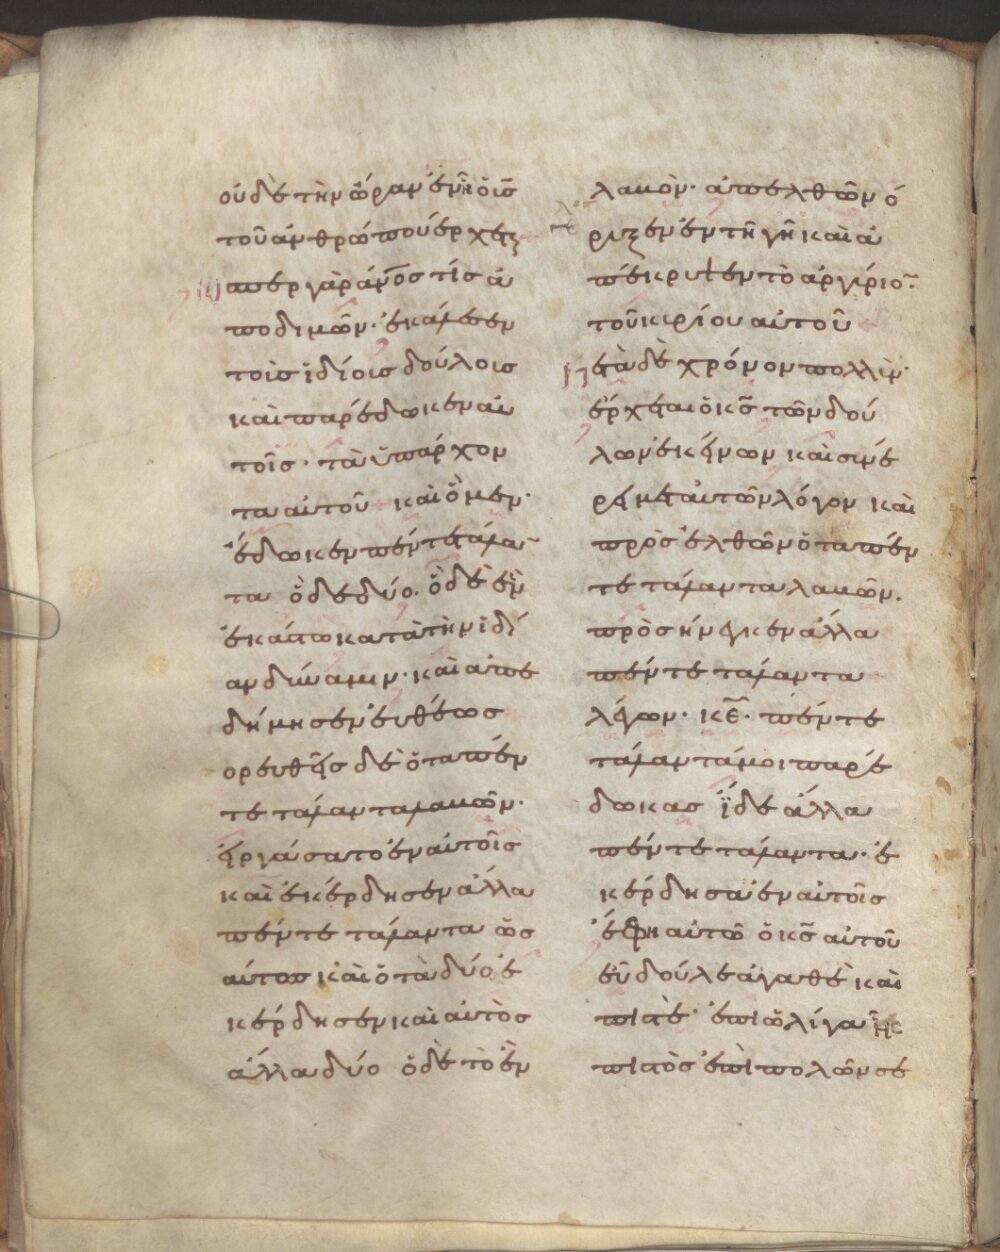 οὐδὲ τὴν ὥραν ἐν ἧ ὁ υἱσ
τοῦ ἀνθρώπου ἔρχεται
ὥσπερ γὰρ ἄνοσ τίσ ἀ
ποδιμῶν· ἐκάλεσεν
τοὶσ ἰδίοισ δούλοισ
καὶ παρέδωκεν αὐ
τοῖσ· τὰ ὑπάρχον
τα αὐτοῦ καὶ ὃ μεν·
ἔδωκεν πέντε τάλαν
τα ὃ δε δύο. ὃ δὲ ἓν
ἑκάστω κατὰ τὴν ἰδί
αν δύναμιν· καὶ ἀπε
δήμησεν εὐθέωσ
πορευθεὶσ δὲ ὁ τα πέν
τε τάλαντα λαβῶν·
εἰργάσατο ἐν αὐτοῖσ
καὶ ἐκέρδησεν ἄλλα
πέντε τάλαντα ὡσ
αύτοσ καὶ ὁ τὰ δύο ἐ
κέρδησεν καὶ αὐτὸσ
ἄλλα δύο ὁ δὲ τὸ ἓν
λαβὸν· ἀπελθῶν ὀ
ριξεν ἐν τῆ γῆ καὶ ἀ
πέκρυψεν τὸ ἀργύριον
τοῦ κυρίου αὐτοῦ
μετὰ δὲ χρόνον πολλὺν·
ἔρχεται ὁ κσ τῶν δού
λων ἐκείνων καὶ συνέ
ρει μετ αὐτῶν λόγον καὶ
προσελθῶν ὁ τα πέν
τε τάλαντα λαβῶν.
πρὸσήνεγκεν ἄλλα
πέντε τάλαντα
λέγων· κε· πέντε
τάλαντά μοι παρέ
δωκασ ἴδε ἄλλα
πέντε τάλαντα· ἐ
κέρδησα ἐν αὐτοῖσ
ἔφη αὐτῶ ὁ κσ αὐτοῦ
εὖ δοῦλε ἀγαθὲ καὶ
πιστὲ· ἐπὶ ὀλίγα ἦσ
πιστὸσ ἐπὶ πολῶν σέ